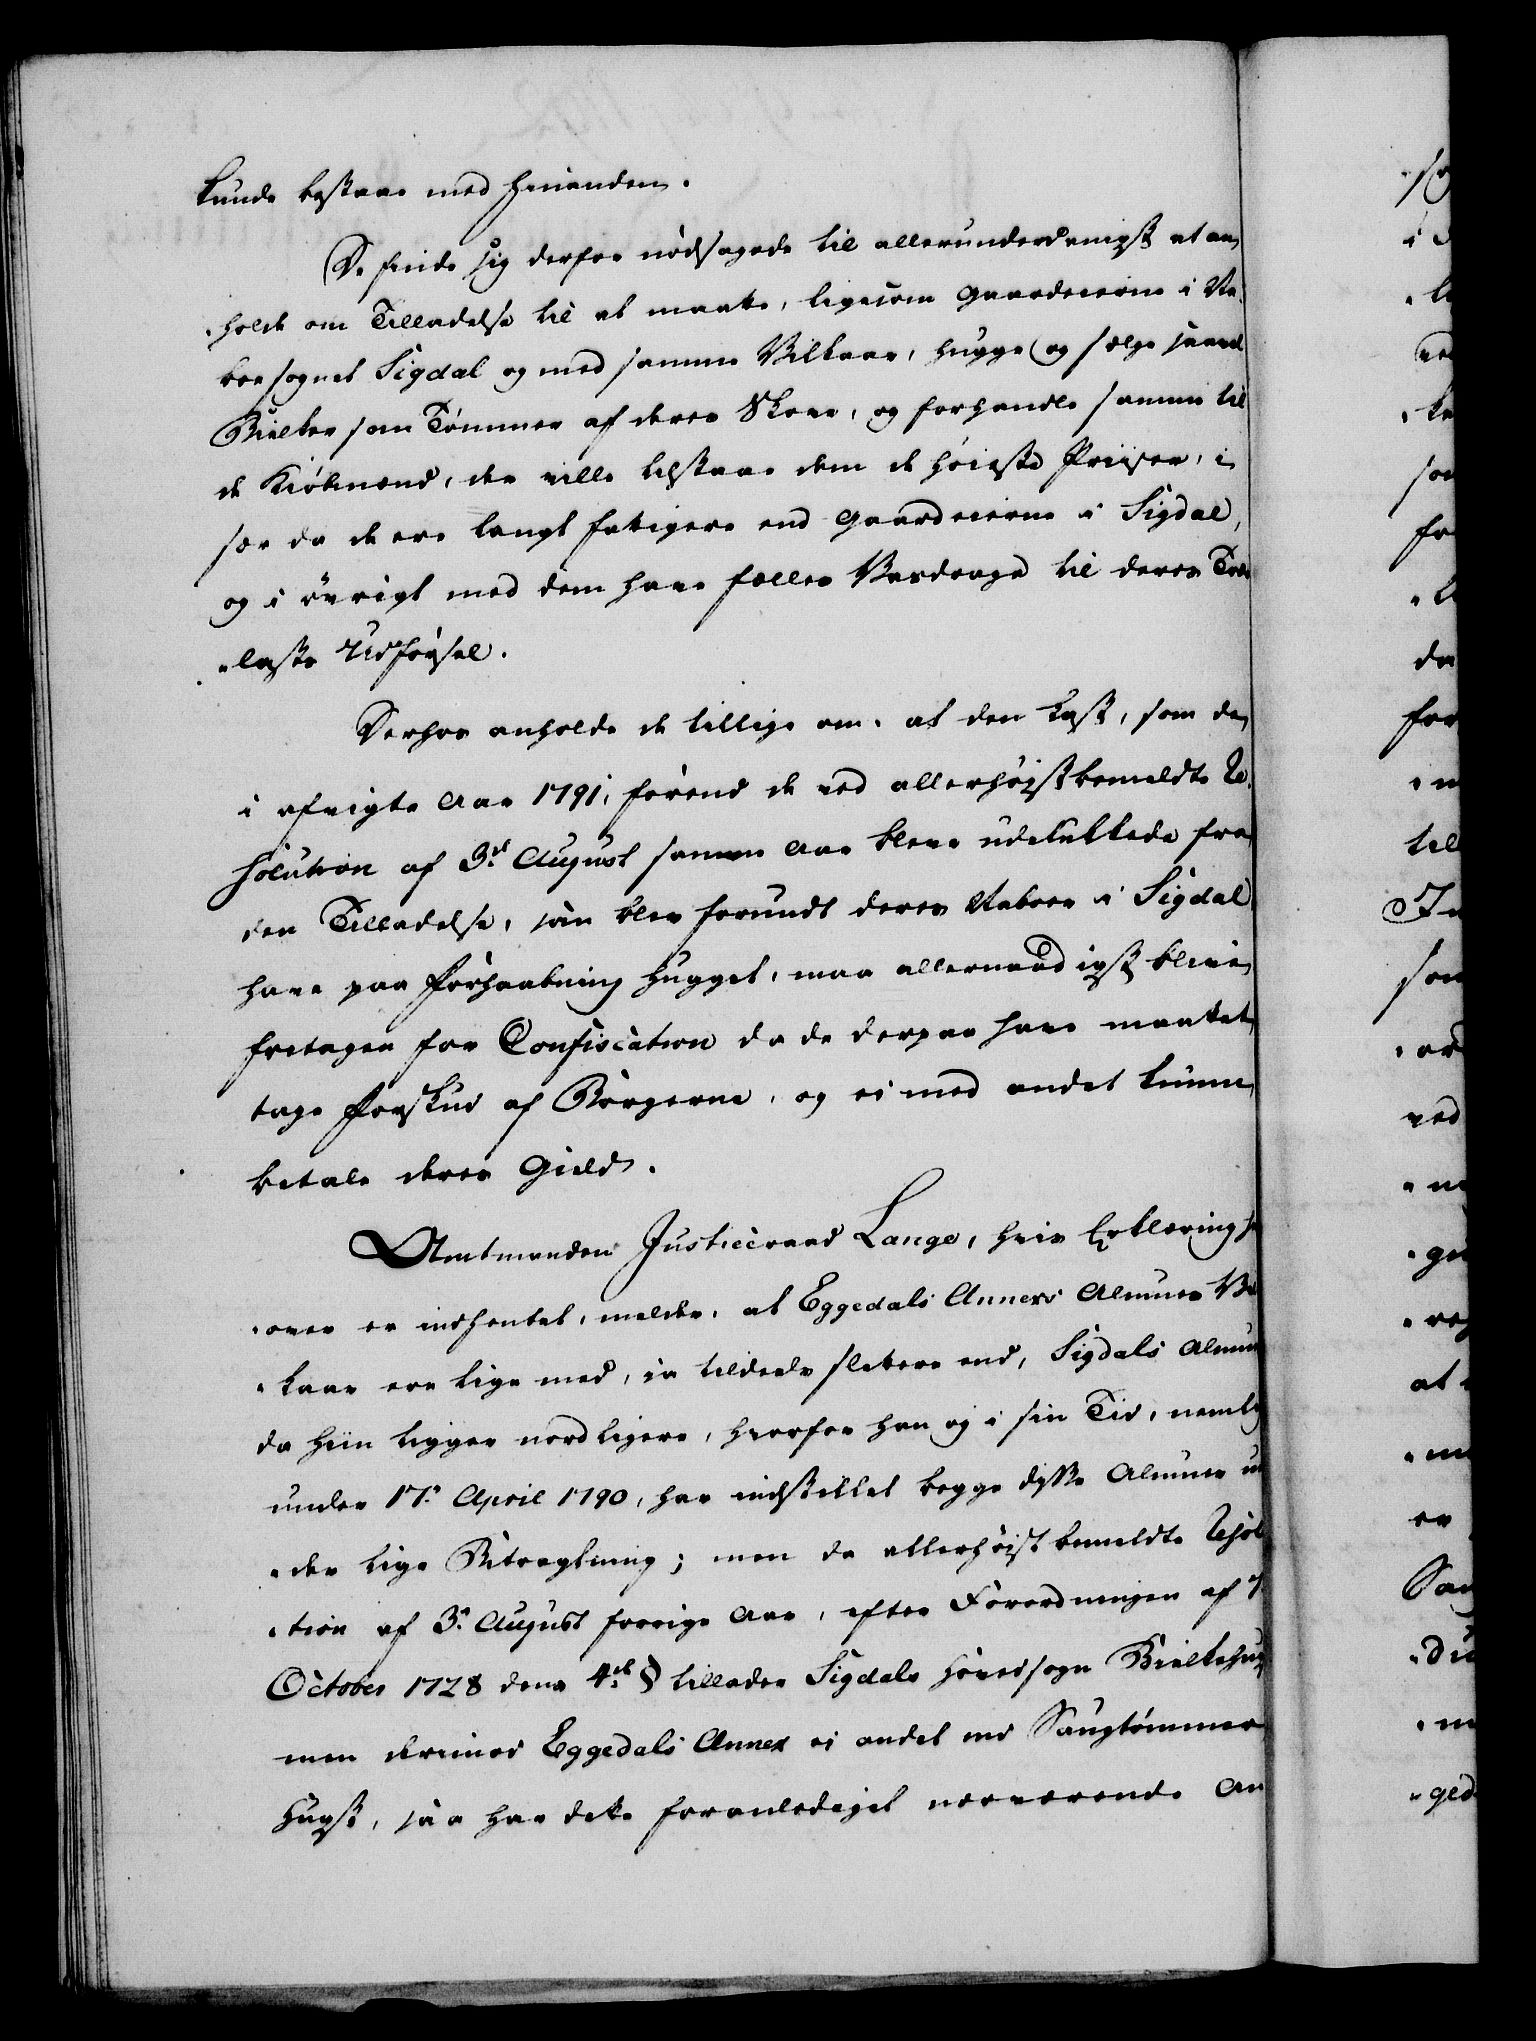 kunde bestaae med hinanden.
De finde sig derfor nødsagede til allerunderdanigst at an¬
„holde om Tilladelse til at maatte, ligesom Gaardeierne i Na¬
boe sognet Sigdal og med samme Vilkaar, hugge og sælge saavel
Bielker som Tømmer af deres Skove, og forhandle samme til
de Kiøbmænd, der ville tilstaae dem de høieste Priiser, i
sær da de ere langt fattigere end Gaardeierne i Sigdal,
og i øvrigt med dem have fælles Vasdrage til deres Træ
„lasts Udførsel.
Derhos anholde de tillige om, at den Last, som de
i afvigte Aar 1791, førend de ved allerhøistbemeldte Re¬
solution af 3de August samme Aar bleve udelukkede fra
den Tilladelse, som blev forundt deres Naboer i Sigdal,
have paa Forhaabning hugget, maa allernaadigst blive
fritagen for Confiscation da de derpaa have maattet
tage Forskud af Borgerne, og ei med andet kunne
betale deres Gield.
Amtmanden Justiceraad Lange, hvis Erklæring her
„over er indhentet, melder, at Eggedals Annexs Almues Vil
„kaar ere lige med, ja tildeels slettere end, Sigdals Almues
da hiin ligger nordligere, hvorfor han og i sin Tid, nemlig
under 17de April 1790, har indstillet begge disse Almuer un
„der lige Betragtning; men da allerhøistbemeldte Resolu
„tion af 3de August forrige Aar, efter Forordningen af
October 1728 dens 4de § tillader Sigdals Hovedsogn Bielkehugst
men derimod Eggedals Annex ei andet end Saugtømmer
Hugst, saa har dette foranlediget nærværende An